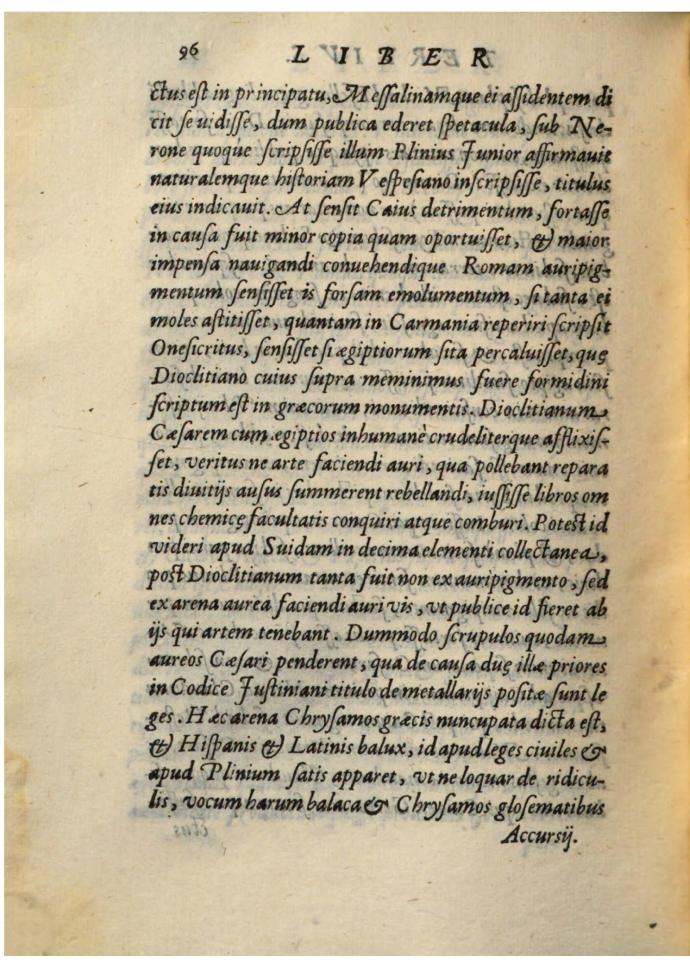 96 LIBER
ctus est in principatu, Messalinamque ei assidentem di
cit se uidisse, dum publica ederet spetacula, sub Ne-
rone quoque scripsisse illum Plinius Junior affirmauit
naturalemque historiam Vespesiano inscripsisse, titulus
eius indicauit. At sensit Caius detrimentum, fortasse
in causa fuit minor copia quam oportuisset, & maior
impensa nauigandi conuehendique Romam auripig-
mentum sensisset is forsam emolumentum, si tanta ei
moles astitisset, quantam in Carmania reperiri scripsit
Onesicritus, sensisset si ægiptiorum sita percaluisset, quę
Dioclitiano cuius supra meminimus fuere formidini
scriptum est in græcorum monumentis. Dioclitianum
Cæsarem cum ægiptios inhumanè crudeliterque afflixis-
set, veritus ne arte faciendi auri, qua pollebant repara
tis diuitijs ausus summerent rebellandi, iussisse libros om
nes chemicę facultatis conquiri atque comburi. Potest id
videri apud Suidam in decima elementi collectanea,
post Dioclitianum tanta fuit non ex auripigmento, sed
ex arena aurea faciendi auri vis, vt publice id fieret ab
ijs qui artem tenebant. Dummodo scrupulos quodam
aureos Cæsari penderent, qua de causa duę illæ priores
in Codice Justiniani titulo de metallarijs positæ sunt le
ges. Hæc arena Chrysamos græcis nuncupata dicta est,
& Hispanis & Latinis balux, id apud leges ciuiles &
apud Plinium satis apparet, vt ne loquar de ridicu-
lis, vocum harum balaca & Chrysamos glosematibus
Accursij.